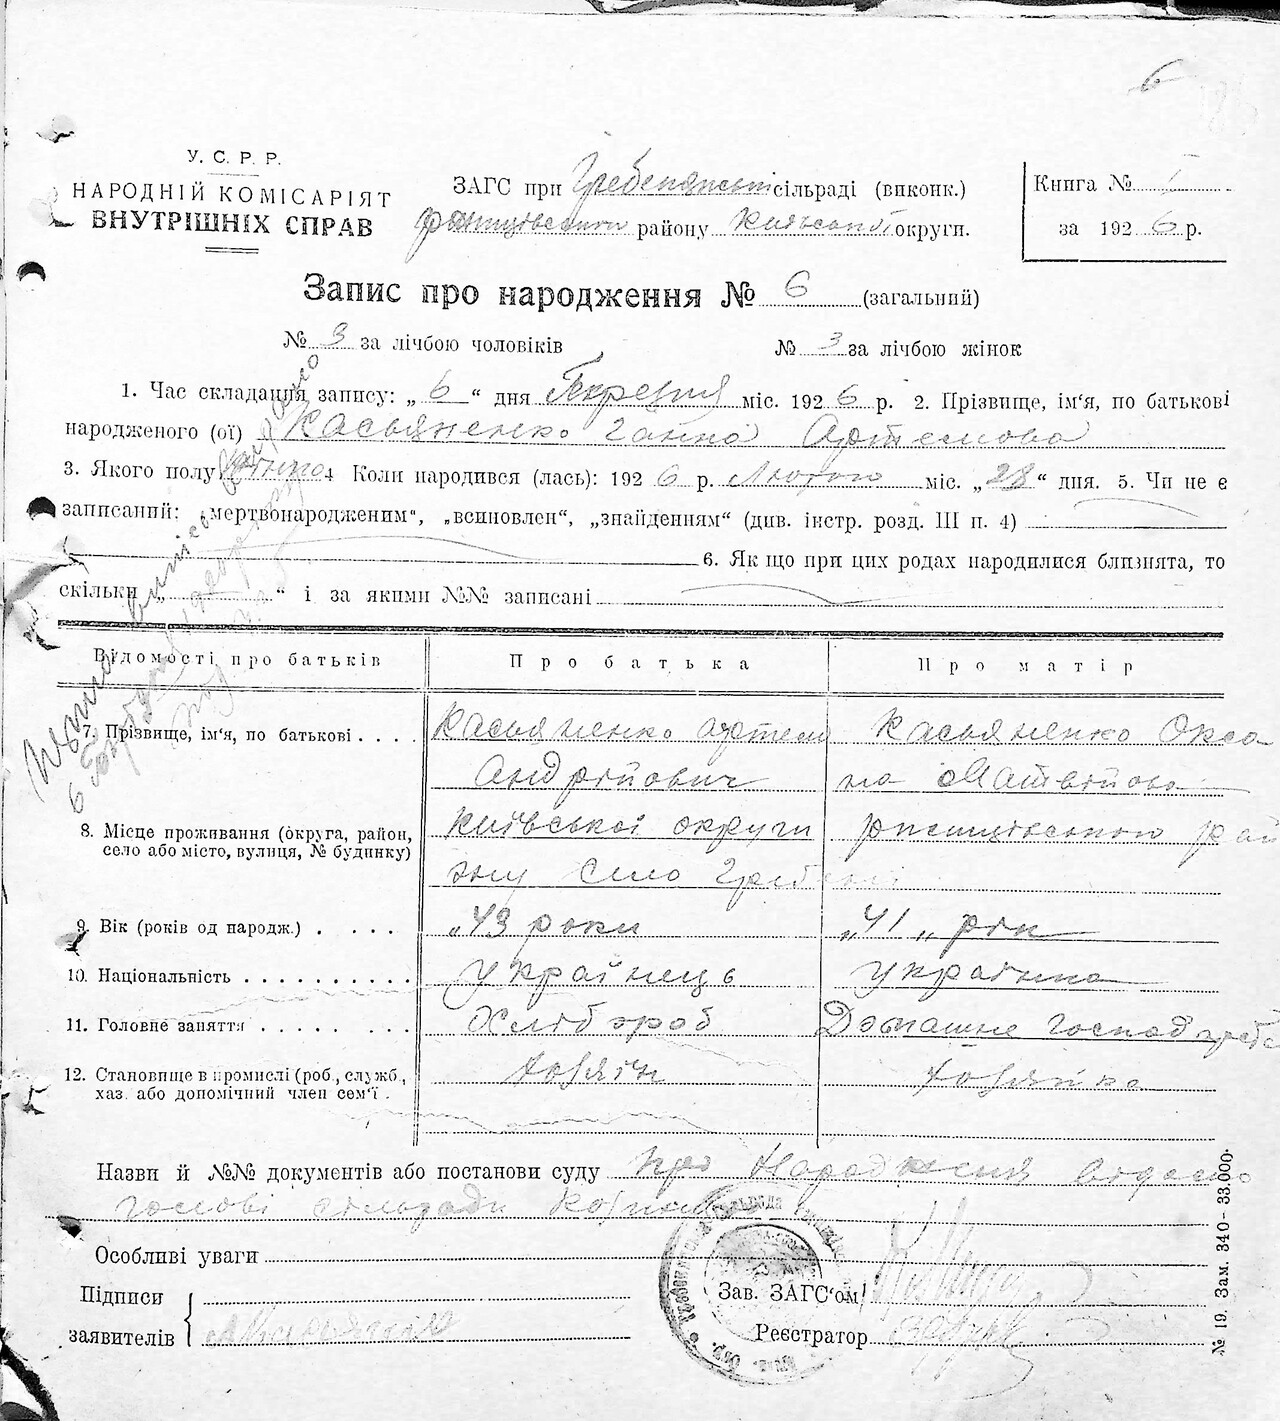 6
У. С. Р. Р.
НАРОДНІЙ КОМІСАРІЯТ
ВНУТРІШНІХ СПРАВ
ЗАГС при сільраді (виконк.)
району Київської округи.
Книга № I
за 1926 р.
Запис про народження № 6 (загальний)
№ 3 за лічбою чоловіків № 3 за лічбою жінок
1. Час складання запису: „ 6 “ дня Березня міс. 1926 р. 2. Прізвище, ім‘я, по батькові
народженого (ої) Касьяненко Ганна Артемова
3. Якого полу 4 Коли народився (лась): 1926 р. Лютого міс. „28“ дня. 5. Чи не є
записаний: „мертвонародженим“, „всиновлен“, „знайденням“ (див. інстр. розд. III п. 4)
6. Як що при цих родах народилися близнята, то
скільки „ “ і за якими №№ записані
Відомості про батьків Про батька Про матір
7. Прізвище, ім‘я, по батькові . . . . Касьяненко Артем Касьяненко Окса
Андрійович на Матвійова
8. Місце проживання (округа, район, Київської округи
село або місто, вулиця, № будинку)
ону село
9. Вік (років од народж.) . . . . „43 роки „41„ рік
10. Національність . . . . . . . . . . . Українець Українка
11. Головне заняття . . . . . . . . Хлібороб Домашнє
12. Становище в промислі (роб., служб., Хозяїн Хозяйка
хаз. або допомічний член сем‘ї .
Назви й №№ документів або постанови суду про Народження
голові сільради
Особливі уваги
Підписи
заявителів
Зав. ЗАГС‘ом
Реєстратор
№ 19. Зам. 340 – 33.000.